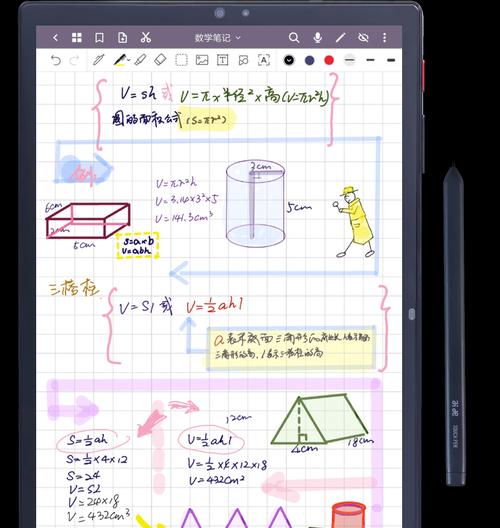 数学笔记
V=sh 或 V=π×半径²×高(V=πr²h)
圆的面积公式(S=πr²)
例:
V=πr²h
V=3.14×3²×5
V=141.3cm³
3cm
5cm
6cm
2cm
5cm
S=a×b
V=abh
三棱柱
V=Sl 或 V=½ahl
a表示底面三角形的底长,h表示底面
三角形的高,l表示三棱柱的高
12cm
4cm
18cm
S=½ah
S=½×4×12
S=24
V=Sl
V=24×18
V=432cm³
V=½ahl
V=½×4×12×18
V=432cm²
TOUCH PEN